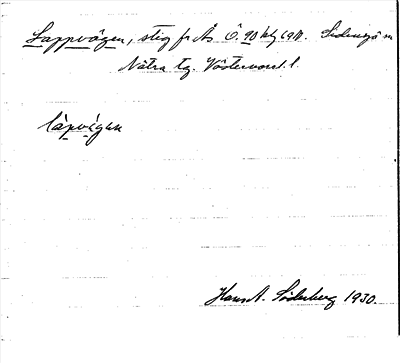 Lappvägen, stig fr. Ås Ö. 90 blg 69N. Sidensjö sn
Nätra tg. Västernorrl. l.
làpvı́gen
Hans A. Söderberg 1930.